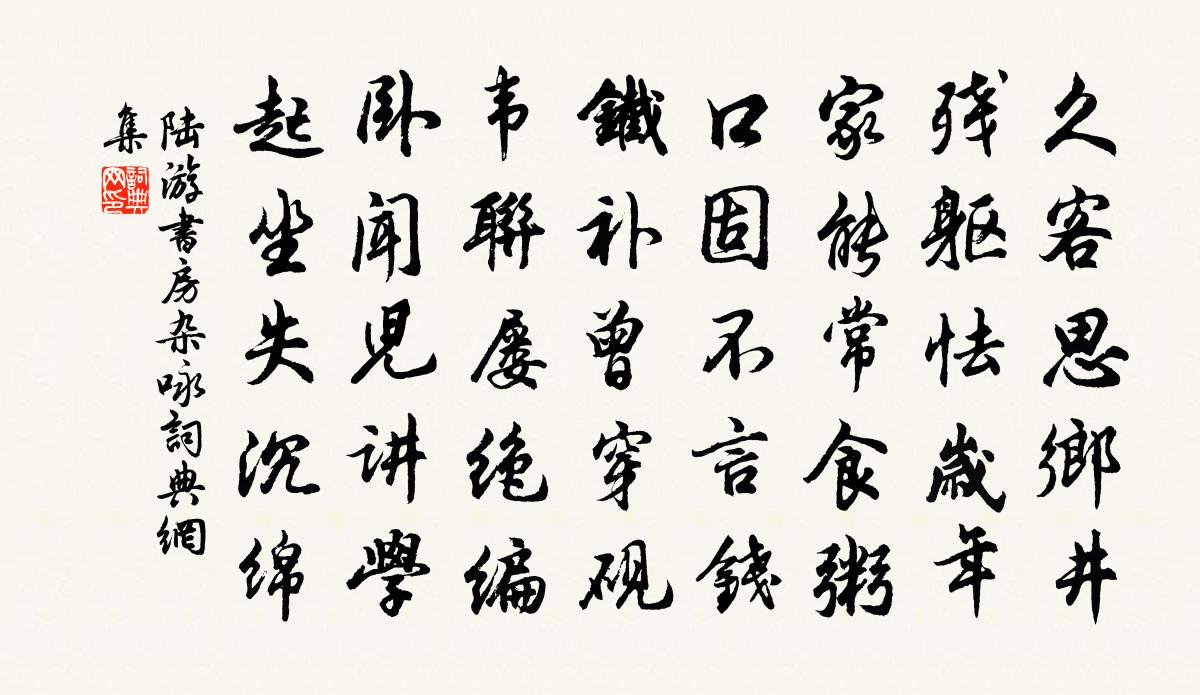 久客思鄉井
残躯怯歲年
家能常食粥
口固不言錢
鐵补曾穿砚
韦聯屡绝编
卧闻児讲學
起坐失沉绵
陆游書房杂咏詞典網
集
詞典
网印